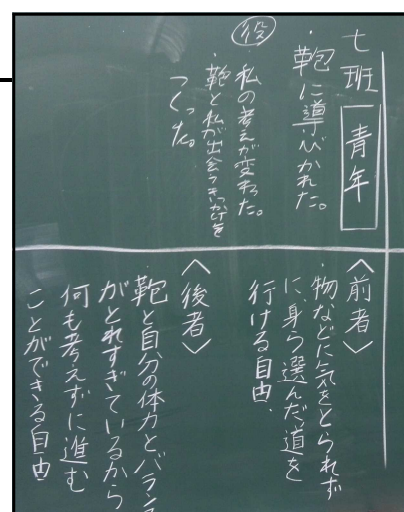 七班 青年
・鞄に導びかれた。
役
・私の考えが変わった。
・鞄と私が出会うきっかけを
つくった。
〈前者〉
・物などに気をとられず
に、身ら選んだ道を
行ける自由、
〈後者〉
・鞄と自分の体力とバランス
がとれすぎているから
何も考えずに進む
ことができる自由